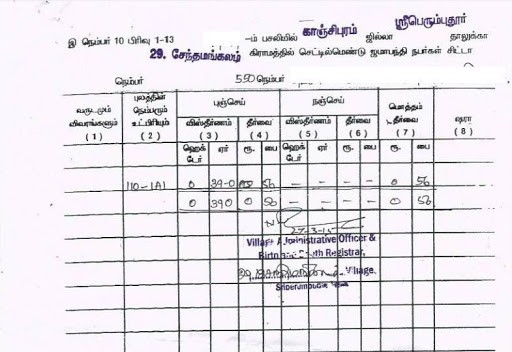 காஞ்சிபுரம் ஸ்ரீபெரும்புதூர்
இ நெம்பர் 10 பிரிவு 1-13 -ம் பசலியில் ஜில்லா தாலுக்கா
29. சேந்தமங்கலம் கிராமத்தில் செட்டில்மெண்டு ஜமாபந்தி நபர்கள் சிட்டா
நெம்பர் 550 நெம்பர்
வருடமும் விவரங்களும் புலத்தின் நெம்பரும் உட்பிரியும் புஞ்செய் நஞ்செய் மொத்தம் தீர்வை ஷரா
விஸ்தீர்ணம் தீர்வை விஸ்தீர்ணம் தீர்வை
(1) (2) (3) (4) (5) (6) (7) (8)
ஹெக்டேர் ஏர் ரூ. பை ஹெக்டேர் ஏர் ரூ. பை ரூ. பை
110-1A1 0 39-0 56 - - - - 0 56
0 390 0 56 - - - - 0 56
27-3-15
Village Administrative Officer &
Birth and Death Registrar,
Village,
Sriperumbudur Taluk